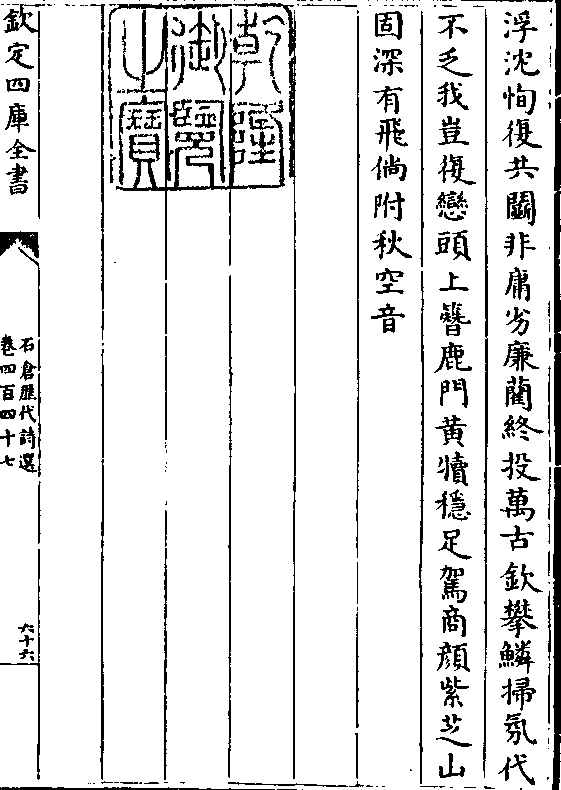 浮沈恂復共鬭非庸劣廉藺終投萬古欽攀鱗掃氛代
不乏我豈復戀頭上簪鹿門黃犢穩足駕商顔紫芝山
固深有飛倘附秋空音
乾隆
御覽
之寶
欽定四庫全書
石倉歷代詩選
卷四百四十七
六十六